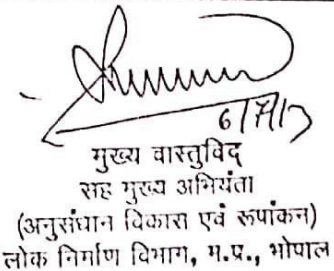 6/7/13
मुख्य वास्तुविद्
सह मुख्य अभियंता
(अनुसंधान विकास एवं रूपांकन)
लोक निर्माण विभाग, म.प्र., भोपाल